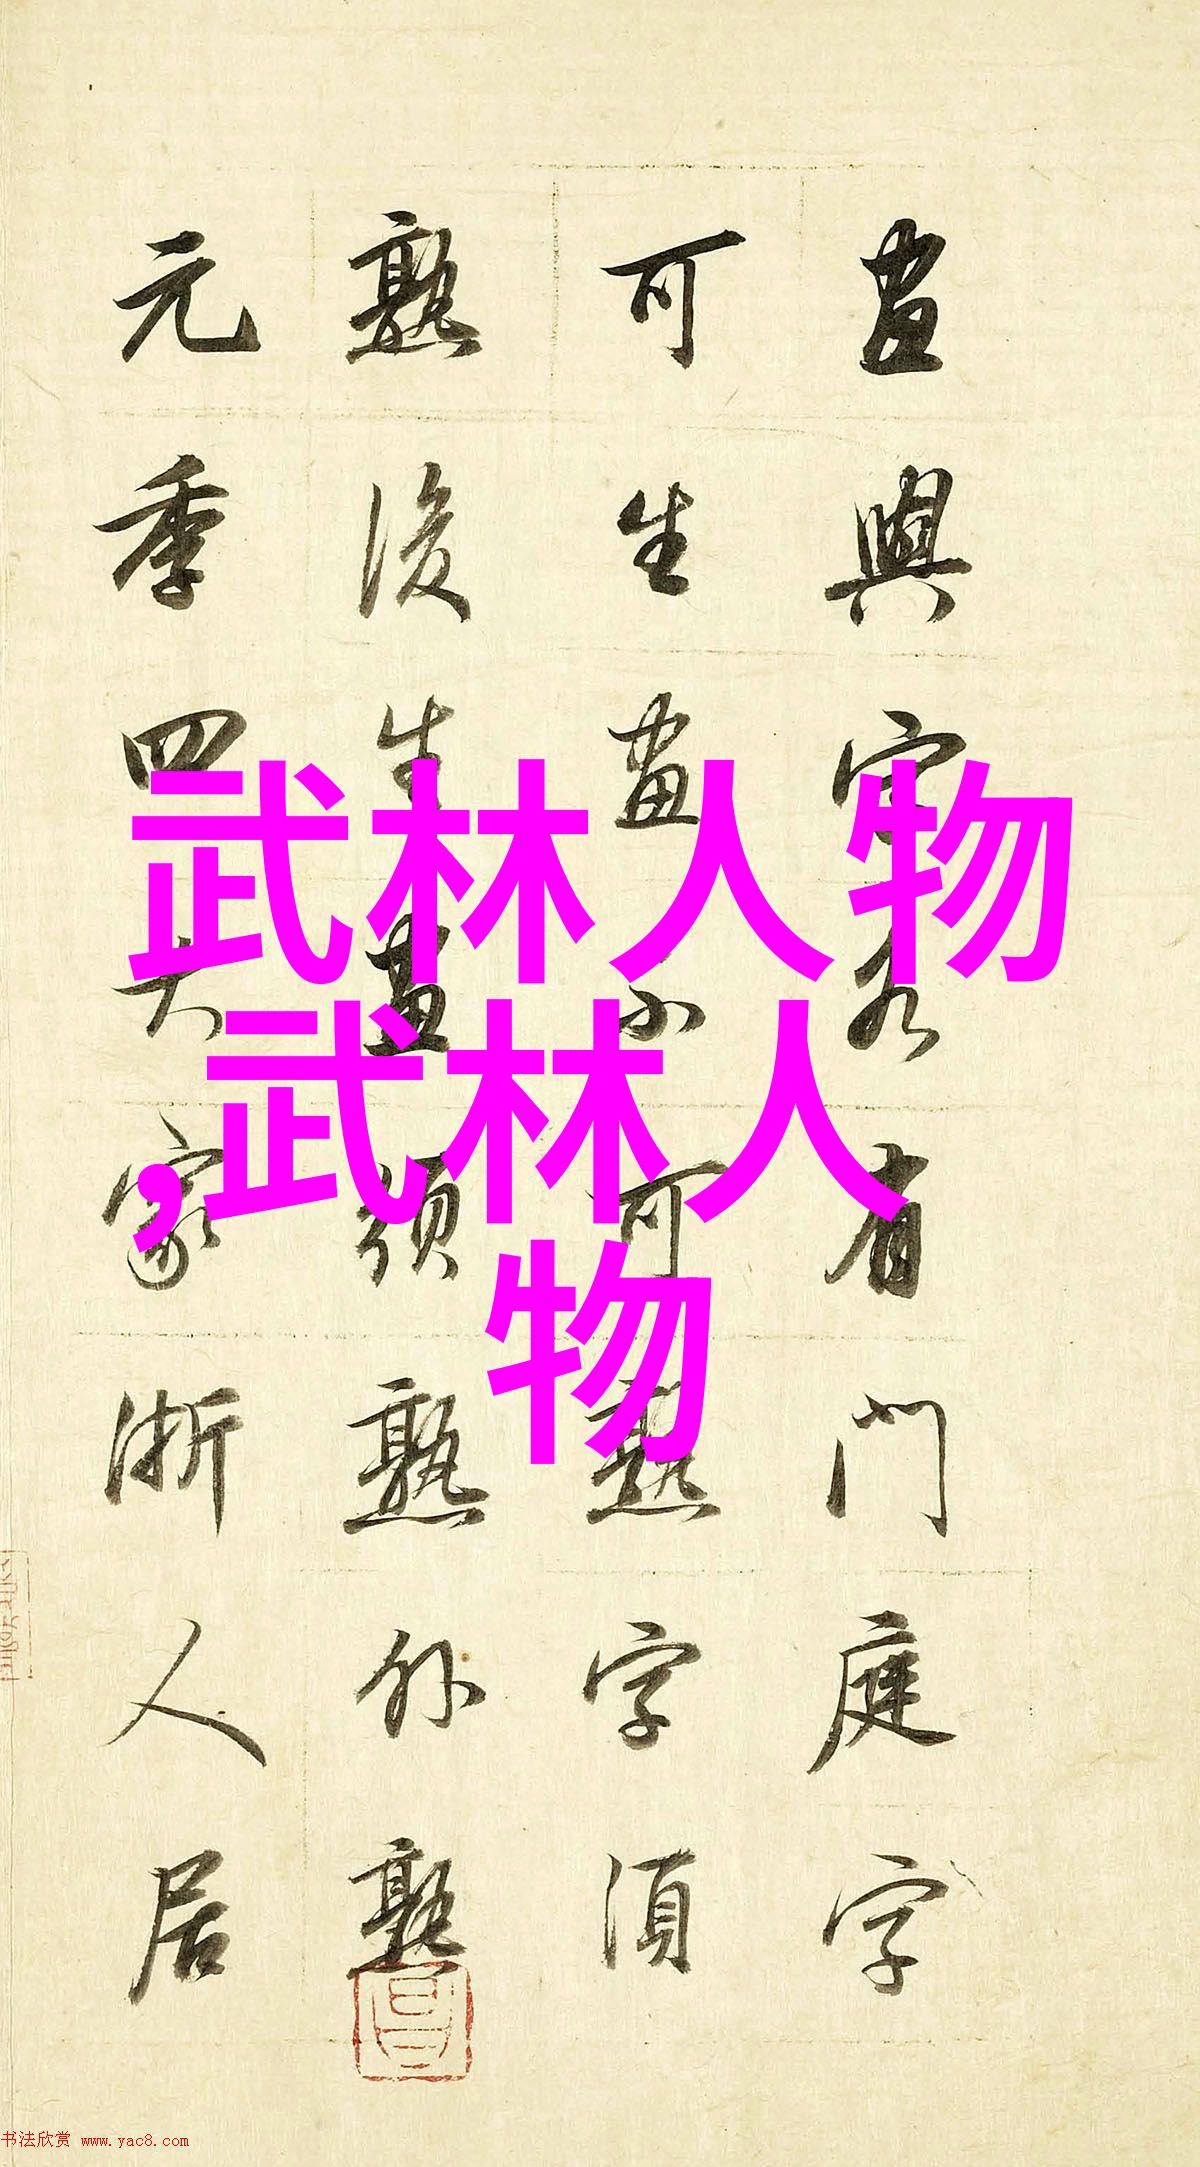 畫與字各有門庭字
可生畫不可熟字須
熟後生畫須熟外熟
元季四大家浙人居
武林人物
,武林人
物
书法欣赏 www.yac8.com